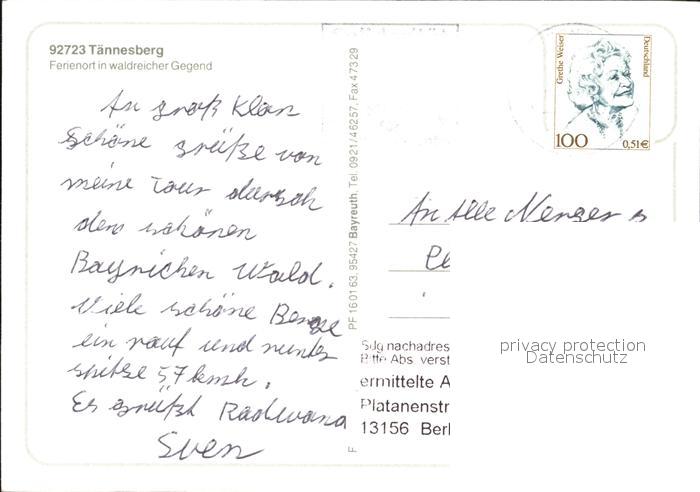 92723 Tännesberg
Ferienort in waldreicher Gegend
An groß Klan
schöne grüße von
meine Tour dursch
den schönen
Bayrichen Wald.
Viele schöne Berge
ein rauf und runter
spitze 57 kmh.
Es grüßt
Sven
PF 160163, 95427 Bayreuth, Tel. 0921/46257, Fax 47329
Grethe Weiser
Deutschland
100
0,51€
An Alle
Sdg nachadres
Bitte Abs. verst
ermittelte A
Platanenstr
13156 Berl
privacy protection
Datenschutz